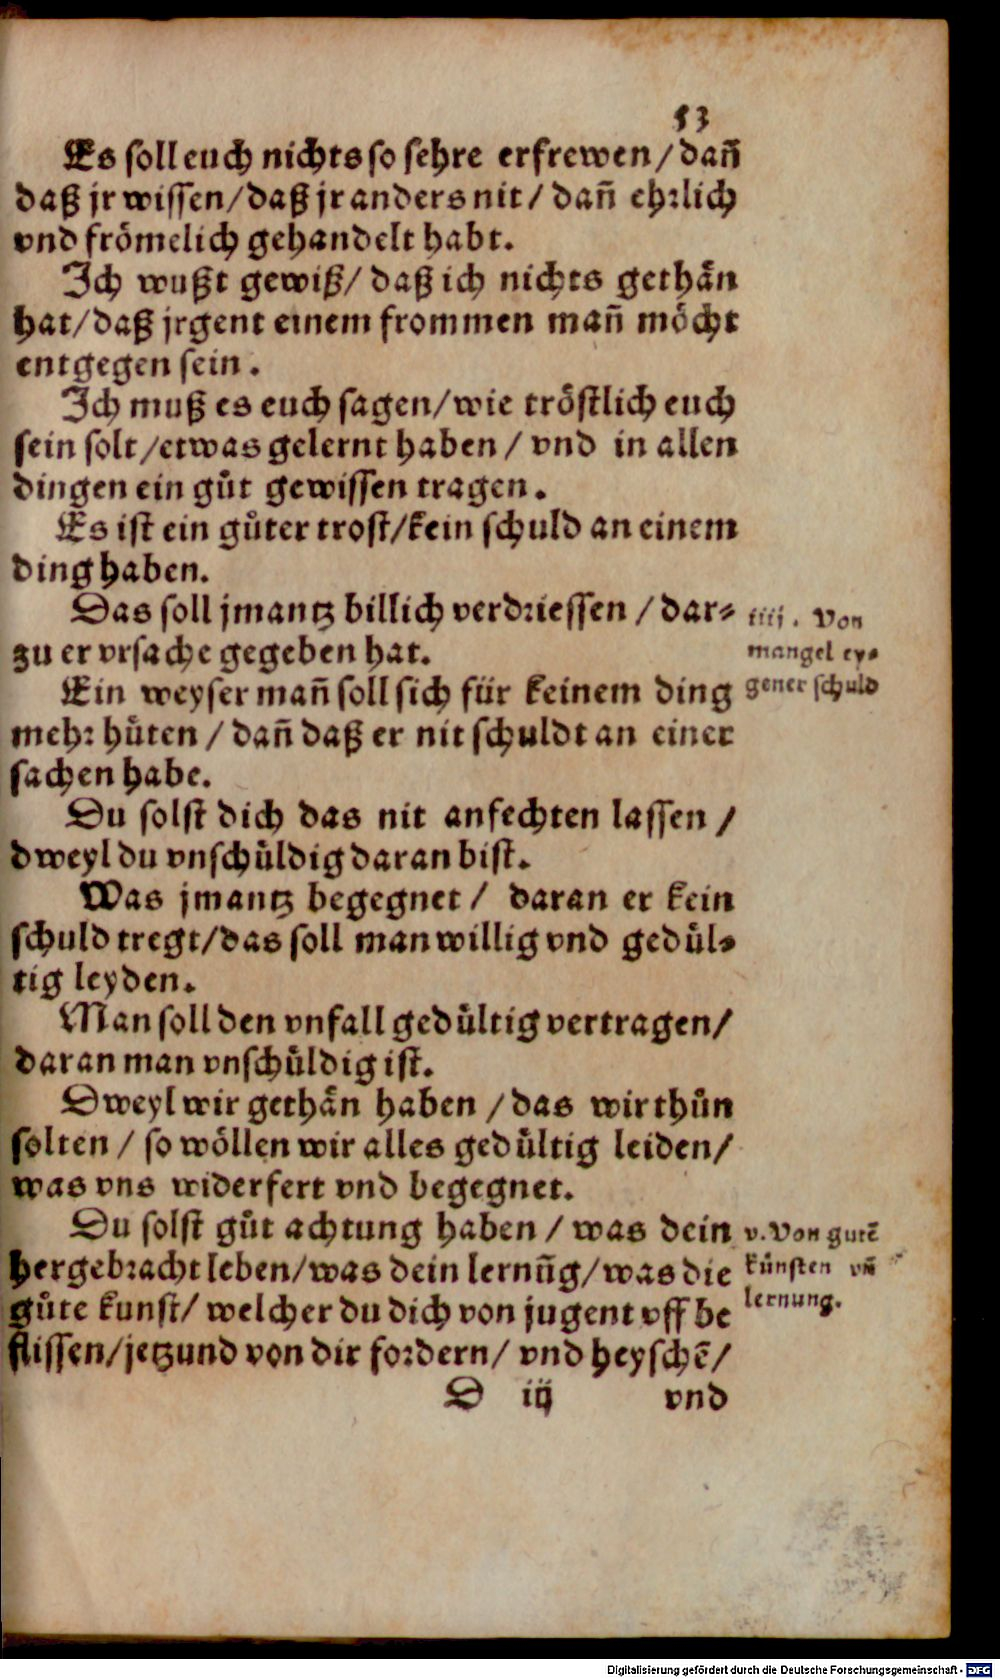 53
Es soll euch nichts so sehre erfrewen / dañ
daß jr wissen / daß jr anders nit / dañ ehrlich
vnd frömelich gehandelt habt.
Ich wußt gewiß / daß ich nichts gethån
hat / daß jrgent einem frommen mañ möcht
entgegen sein.
Ich muß es euch sagen / wie tröstlich euch
sein solt / etwas gelernt haben / vnd in allen
dingen ein gůt gewissen tragen.
Es ist ein gůter trost / kein schuld an einem
ding haben.
Das soll jmantz billich verdriessen / dar-
zu er vrsache gegeben hat.
iiij. Von
mangel ey-
gener schuld
Ein weyser mañ soll sich für keinem ding
mehr hüten / dañ daß er nit schuldt an einer
sachen habe.
Du solst dich das nit anfechten lassen /
dweyl du vnschüldig daran bist.
Was jmantz begegnet / daran er kein
schuld tregt / das soll man willig vnd gedül-
tig leyden.
Man soll den vnfall gedültig vertragen /
daran man vnschüldig ist.
Dweyl wir gethån haben / das wir thůn
solten / so wöllen wir alles gedültig leiden /
was vns widerfert vnd begegnet.
Du solst gůt achtung haben / was dein
hergebracht leben / was dein lernũg / was die
gůte kunst / welcher du dich von jugent vff be
flissen / jetzund von dir fordern / vnd heyschẽ /
v. Von gutẽ
künsten vñ
lernung.
D iij vnd
Digitalisierung gefördert durch die Deutsche Forschungsgemeinschaft - DFG